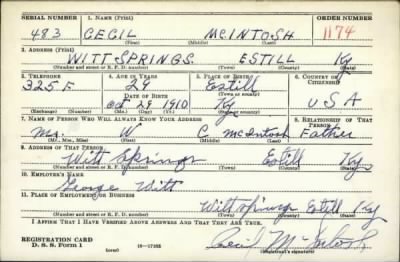 SERIAL NUMBER 1. NAME (Print) ORDER NUMBER
483 CECIL MCINTOSH 1174
(First) (Middle) (Last)
3. ADDRESS (Print)
WITT SPRINGS ESTILL Ky
(Number and street or R. F. D. number) (Town) (County) (State)
3. TELEPHONE 4. AGE IN YEARS 5. PLACE OF BIRTH 6. COUNTRY OF CITIZENSHIP
325 F 29 Estill
DATE OF BIRTH (Town or county)
Oct 29 1910 Ky USA
(Exchange) (Number) (Mo.) (Day) (Yr.) (State or country)
7. NAME OF PERSON WHO WILL ALWAYS KNOW YOUR ADDRESS 8. RELATIONSHIP OF THAT PERSON
W C McIntosh Father
(Mr., Mrs., Miss) (First) (Middle) (Last)
9. ADDRESS OF THAT PERSON
Witt Springs Estill Ky
(Number and street or R. F. D. number) (Town) (County) (State)
10. EMPLOYER'S NAME
George Witt
11. PLACE OF EMPLOYMENT OR BUSINESS
Witt springs Estill Ky
(Number and street or R. F. D. number) (Town) (County) (State)
I AFFIRM THAT I HAVE VERIFIED ABOVE ANSWERS AND THAT THEY ARE TRUE.
REGISTRATION CARD
D. S. S. Form 1 Cecil McIntosh
(Registrant's signature)